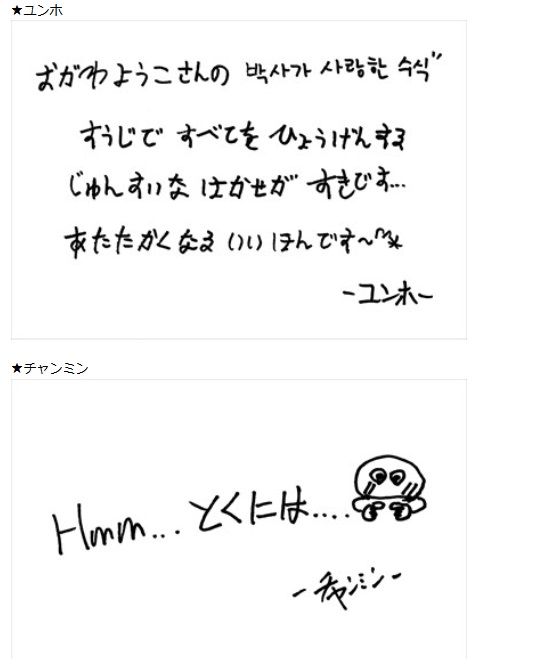 ★ユンホ
おがわようこさんの 박사가 사랑한 수식"
すうじで すべてを ひょうげんする
じゅんすいな はかせが すきです...
あたたかくなる いい ほんです～^^*
-ユンホ-
★チャンミン
Hmm... とくには....
-チャンミン-